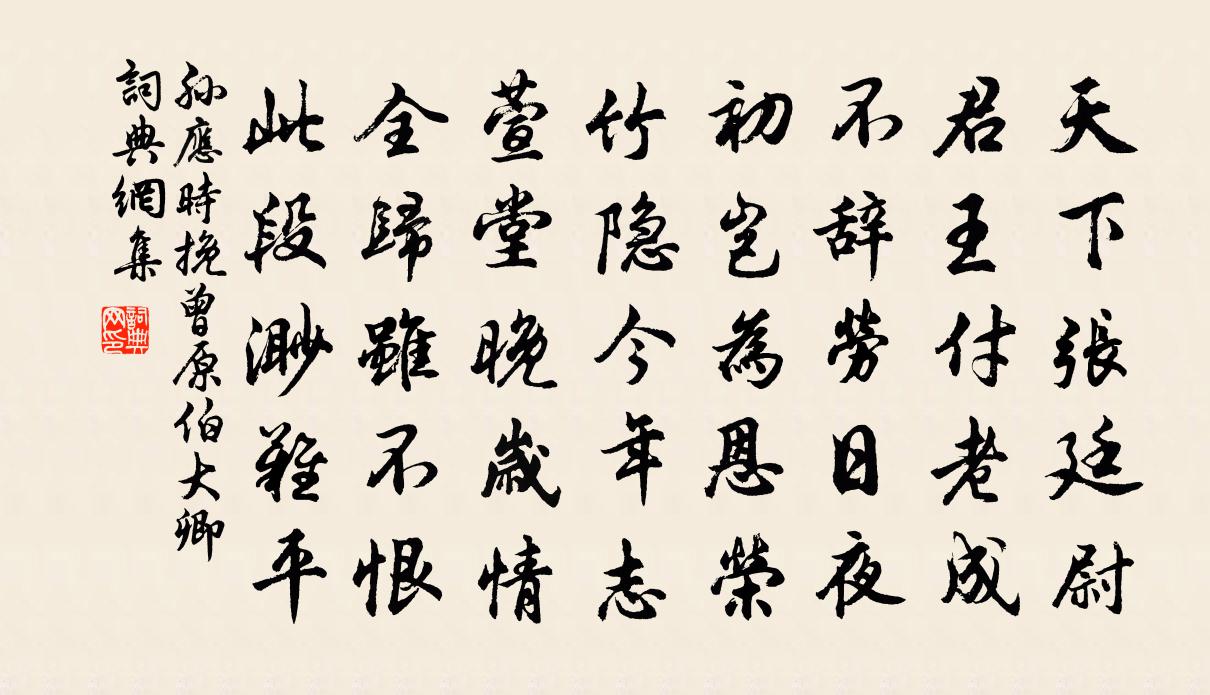 天下張廷尉
君王付老成
不辞勞日夜
初岂為恩榮
竹隐今年志
萱堂晚歲情
全歸雖不恨
此段渺難平
孫應時挽曾原伯大卿
詞典網集
詞典网印